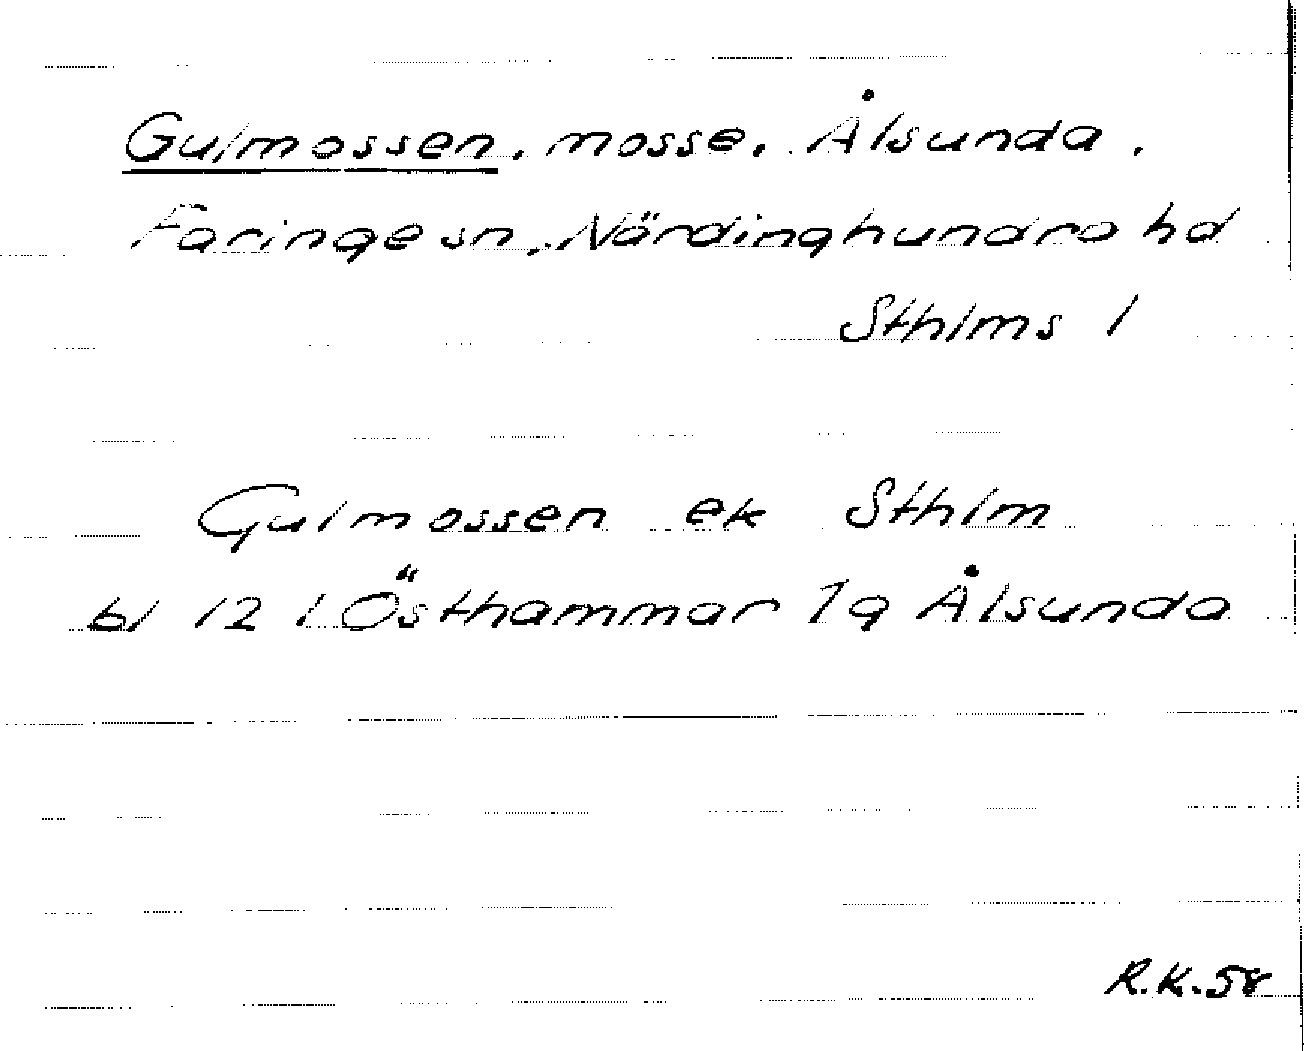 Gulmossen, mosse, Ålsunda,
Faringe sn, Närdinghundra hd
Sthlms l
Gulmossen ek Sthlm
bl 12 l Östhammar 1g Ålsunda
R.K.58